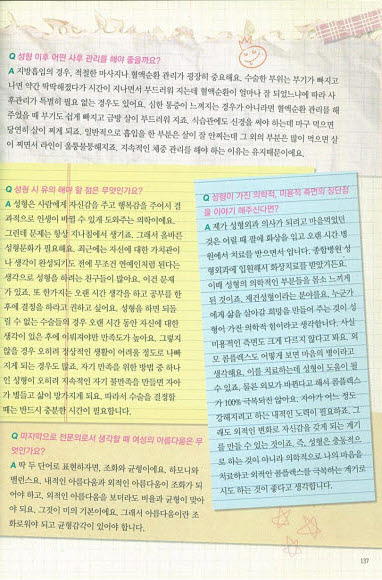 Q 성형 이후 어떤 사후 관리를 해야 좋을까요?
A 지방흡입의 경우, 적절한 마사지나 혈액순환 관리가 굉장히 중요해요. 수술한 부위는 부기가 빠지고
나면 약간 딱딱해졌다가 시간이 지나면서 부드러워 지는데 혈액순환이 얼마나 잘 되었느냐에 따라 사
후관리가 특별히 필요 없는 경우도 있어요. 심한 통증이 느껴지는 경우가 아니라면 혈액순환 관리를 해
주었을 때 부기도 쉽게 빠지고 금방 살이 부드러워 지죠. 식습관에도 신경을 써야 하는데 마구 먹으면
당연히 살이 찌게 되죠. 일반적으로 흡입을 한 부분은 살이 잘 안찌는데 그 외의 부분은 많이 먹으면 살
이 찌면서 라인이 울퉁불퉁해지죠. 지속적인 체중 관리를 해야 하는 이유는 유지때문이에요.
Q 성형 시 유의 해야 할 점은 무엇인가요?
A 성형은 사람에게 자신감을 주고 행복감을 주어서 결
과적으로 인생이 바뀔 수 있게 도와주는 의학이에요.
그런데 문제는 항상 지나침에서 생기죠. 그래서 올바른
성형문화가 필요해요. 최근에는 자신에 대한 가치관이
나 생각이 완성되기도 전에 무조건 연예인처럼 된다는
생각으로 성형을 하려는 친구들이 많아요. 이건 문제
가 있죠. 또 한가지는 오랜 시간 생각을 하고 공부를 한
후에 결정을 하라고 권하고 싶어요. 성형을 하면 되돌
릴 수 없는 수술들의 경우 오랜 시간 동안 자신에 대한
생각이 있은 후에 이뤄져야만 만족도가 높아요. 그렇지
않을 경우 오히려 정상적인 생활이 어려울 정도로 나빠
지게 되는 경우도 많죠. 자기 만족을 위한 방법 중 하나
인 성형이 오히려 지속적인 자기 불만족을 만들면 자아
가 병들고 삶이 망가지게 되죠. 따라서 수술을 결정할
때는 반드시 충분한 시간이 필요합니다.
Q 성형이 가진 의학적, 미용적 측면의 장단점
을 이야기 해주신다면?
A 제가 성형외과 의사가 되려고 마음먹었던
것은 어릴 때 팔에 화상을 입고 오랜 시간 병
원에서 치료를 받으면서 입니다. 종합병원 성
형외과에 입원해서 화상치료를 받았거든요.
이때 성형의 의학적인 부분들을 몸소 느끼게
된 것이죠. 재건성형이라는 분야를요. 누군가
에게 삶을 살아갈 희망을 만들어 주는 것이 성
형이 가진 의학적 힘이라고 생각합니다. 사실
미용적인 측면도 크게 다르지 않다고 봐요. 외
모 콤플렉스도 어떻게 보면 마음의 병이라고
생각해요. 이를 치료하는데 성형이 도움이 될
수 있죠. 물론 외모가 바뀐다고 해서 콤플렉스
가 100% 극복되진 않아요. 자아가 어느 정도
강해지려고 하는 내적인 노력이 필요하죠. 그
래도 외적인 변화로 자신감을 갖게 되는 계기
를 만들 수 있는 것이죠. 즉, 성형은 충동적으
로 하는 것이 아니라 의학적으로 나의 마음을
치료하고 외적인 콤플렉스를 극복하는 계기로
시도 하는 것이 좋다고 생각합니다.
Q 마지막으로 전문의로서 생각할 때 여성의 아름다움은 무
엇인가요?
A 딱 두 단어로 표현하자면, 조화와 균형이에요. 하모니와
밸런스요. 내적인 아름다움과 외적인 아름다움이 조화가 되
어야 하고, 외적인 아름다움을 보더라도 비율과 균형이 맞아
야 되요. 그것이 미의 기본이에요. 그래서 아름다움이란 조
화로워야 되고 균형감각이 있어야 합니다.
137